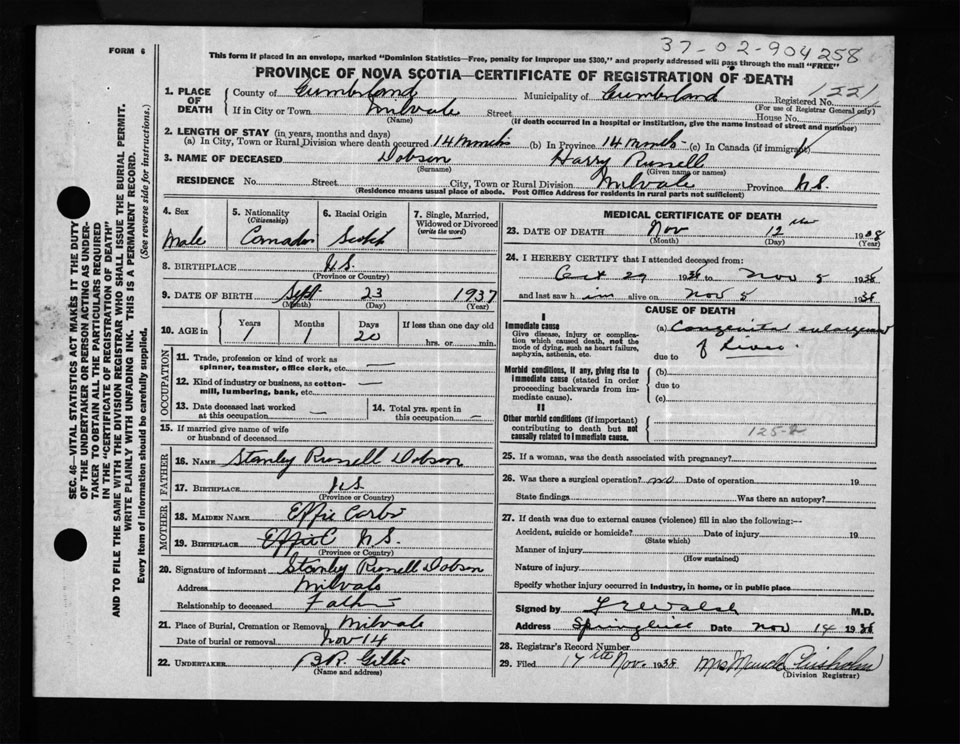 FORM 6
37-02-904258
This form if placed in an envelope, marked "Dominion Statistics—Free, penalty for improper use $300," and properly addressed will pass through the mail "FREE"
PROVINCE OF NOVA SCOTIA—CERTIFICATE OF REGISTRATION OF DEATH
1. PLACE OF DEATH
County of Cumberland Municipality of Cumberland Registered No. 1221
(For use of Registrar General only)
If in City or Town Milvale Street House No.
(Name) (If death occurred in a hospital or institution, give the name instead of street and number)
2. LENGTH OF STAY (in years, months and days)
(a) In City, Town or Rural Division where death occurred 14 months (b) In Province 14 months (c) In Canada (if immigrant)
3. NAME OF DECEASED Dobson Harry Russell
(Surname) (Given name or names)
RESIDENCE No. Street City, Town or Rural Division Milvale Province N.S.
(Residence means usual place of abode. Post Office Address for residents in rural parts not sufficient)
4. Sex
Male
5. Nationality
(Citizenship)
6. Racial Origin
Scotch
7. Single, Married, Widowed or Divorced
(write the word)
—
8. BIRTHPLACE N.S
(Province or Country)
9. DATE OF BIRTH Sept 23 1937
(Month) (Day) (Year)
10. AGE in Years Months Days If less than one day old
1 1 20 hrs. or min.
OCCUPATION
11. Trade, profession or kind of work as spinner, teamster, office clerk, etc. —
12. Kind of industry or business, as cotton-mill, lumbering, bank, etc. —
13. Date deceased last worked at this occupation —
14. Total yrs. spent in this occupation —
15. If married give name of wife or husband of deceased
FATHER
16. NAME Stanley Russell Dobson
17. BIRTHPLACE N.S
(Province or Country)
MOTHER
18. MAIDEN NAME Effie
19. BIRTHPLACE N.S.
(Province or Country)
20. Signature of informant Stanley Russell Dobson
Address Milvale
Relationship to deceased Father
21. Place of Burial, Cremation or Removal Milvale
Date of burial or removal Nov 14
22. UNDERTAKER
(Name and address)
MEDICAL CERTIFICATE OF DEATH
23. DATE OF DEATH Nov 12th 1938
(Month) (Day) (Year)
24. I HEREBY CERTIFY that I attended deceased from:
Oct 29 1938 to Nov 8 1938
and last saw him alive on Nov 8 1938
CAUSE OF DEATH
I
Immediate cause
Give disease, injury or complication which caused death, not the mode of dying, such as heart failure, asphyxia, asthenia, etc.
(a) Congenital enlargement of Liver.
due to
Morbid conditions, if any, giving rise to immediate cause (stated in order proceeding backwards from immediate cause).
(b)
due to
(c)
II
Other morbid conditions (if important) contributing to death but not causally related to immediate cause.
25. If a woman, was the death associated with pregnancy?
26. Was there a surgical operation? no Date of operation 19
State findings Was there an autopsy?
27. If death was due to external causes (violence) fill in also the following:—
Accident, suicide or homicide? Date of injury 19
(State which)
Manner of injury
(How sustained)
Nature of injury
Specify whether injury occurred in industry, in home, or in public place
Signed by Walsh M.D.
Address Springhill Date Nov 14 1938
28. Registrar's Record Number
29. Filed 17th Nov. 1938 Mrs Maude Chisholm
(Division Registrar)
SEC. 46—VITAL STATISTICS ACT MAKES IT THE DUTY
OF THE UNDERTAKER OR PERSON ACTING AS UNDER-
TAKER TO OBTAIN ALL THE PARTICULARS REQUIRED
IN THE "CERTIFICATE OF REGISTRATION OF DEATH"
AND TO FILE THE SAME WITH THE DIVISION REGISTRAR WHO SHALL ISSUE THE BURIAL PERMIT.
WRITE PLAINLY WITH UNFADING INK. THIS IS A PERMANENT RECORD.
Every item of information should be carefully supplied. (See reverse side for instructions.)